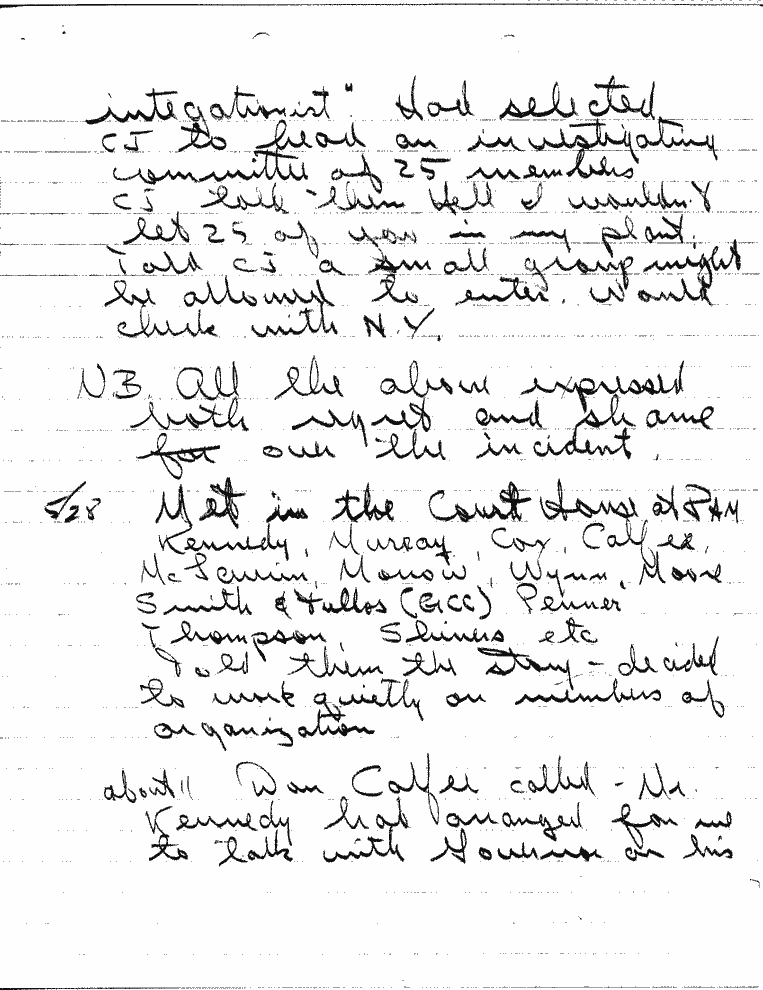 integationist" Had selected
CJ to head an investigating
committee of 25 members
CJ told them Hell I wouldn't
let 25 of you in my plant.
Told CJ a small group might
be allowed to enter. Would
check with N.Y.
NB. All the above expressed
both regret and shame
for over the incident.
5/28 Met in the Court House at 8 PM
Kennedy, Murray, Cox, Calfee,
McLaurin, Morrow, Wynn, Moore
Smith & Tullos (GCC) Penner
Thompson, Shiners etc
Told them the story - decided
to work quietly on members of
organization
about 11 Dan Calfee called - Mr.
Kennedy has arranged for me
to talk with Governor on his